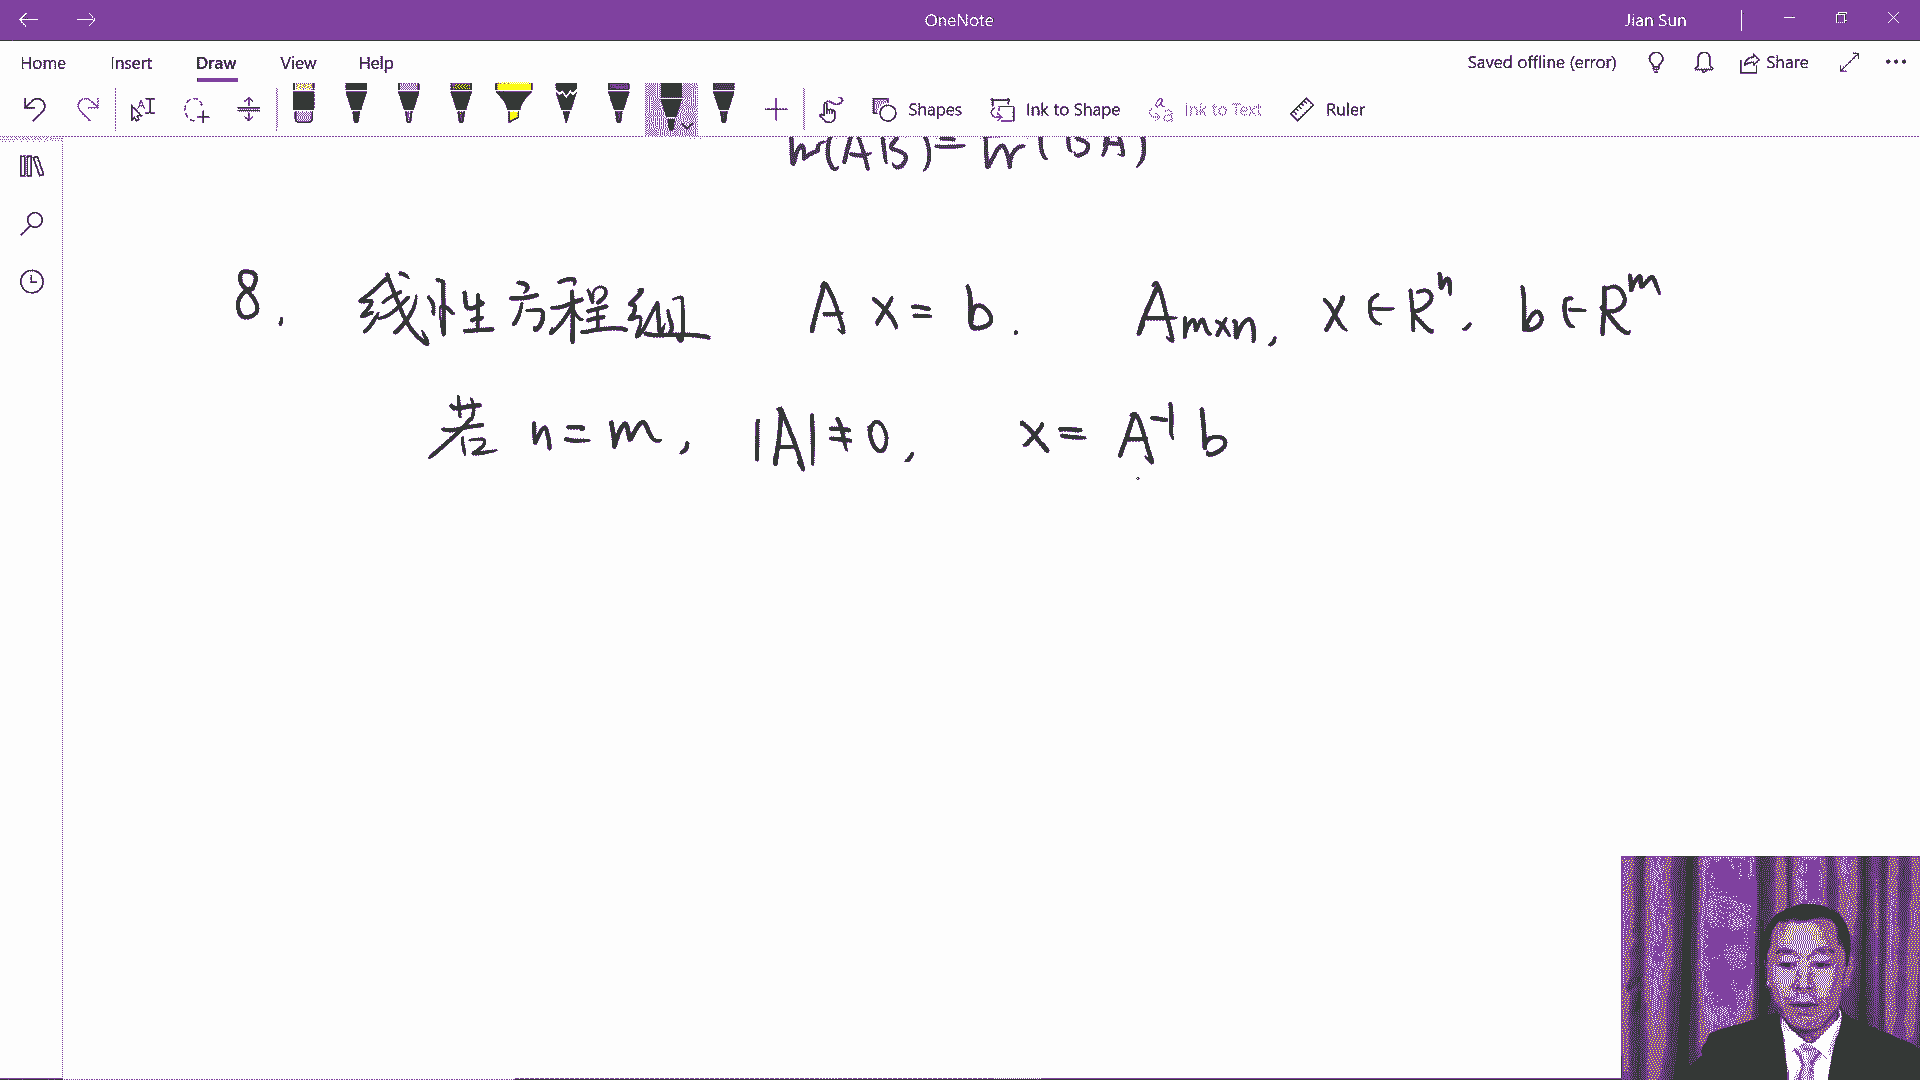 OneNote
Jian Sun
Home Insert Draw View Help
Saved offline (error) Share
Shapes Ink to Shape Ink to Text Ruler
tr(AB) = tr(BA)
8. 线性方程组 Ax = b. Aₘₓₙ, x ∈ Rⁿ, b ∈ Rᵐ
若 n = m, |A| ≠ 0, x = A⁻¹ b